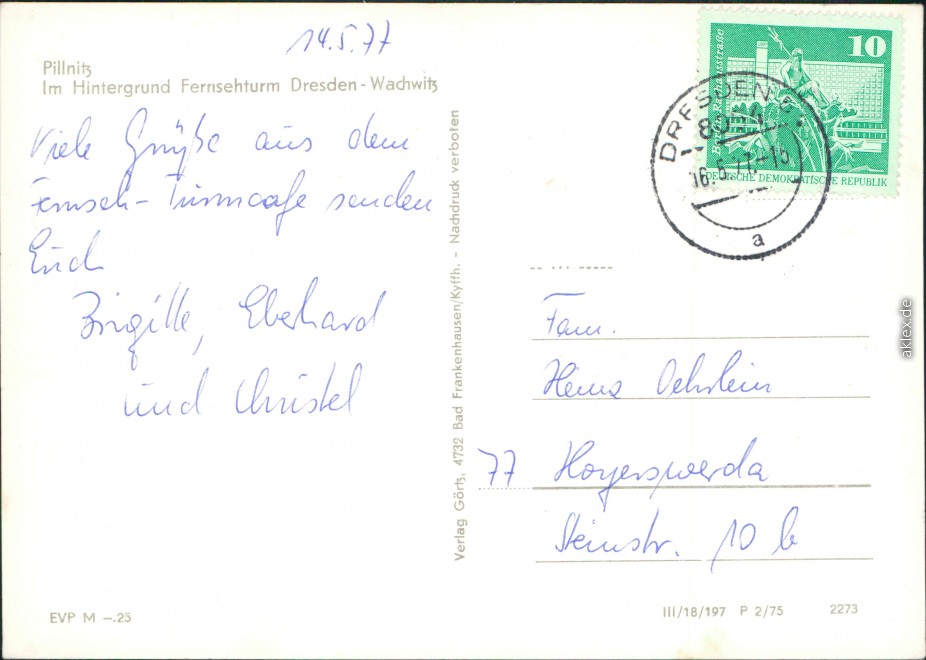 14.5.77
Pillnitz
Im Hintergrund Fernsehturm Dresden-Wachwitz
Viele Grüße aus dem
Fernseh-Turmcafe senden
Euch
Birgitte, Eberhard
und Christel
Verlag Görtz, 4732 Bad Frankenhausen/Kyffh. - Nachdruck verboten
10
DEUTSCHE DEMOKRATISCHE REPUBLIK
DRESDEN
16.5.77-15
a
Fam.
Heinz Oehrlein
77 Hoyerswerda
Steinstr. 10 b
EVP M -.25
III/18/197 P 2/75 2273
aklex.de